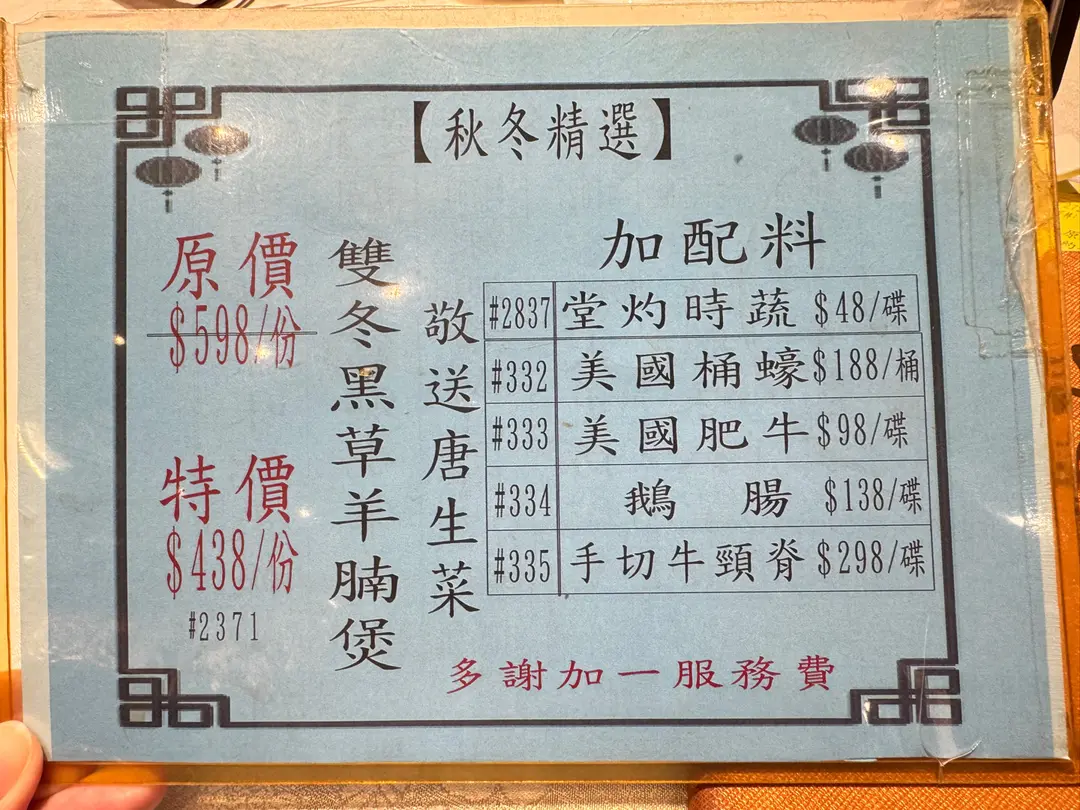 【秋冬精選】
加配料
#2837 堂灼時蔬 $48/碟
#332 美國桶蠔 $188/桶
#333 美國肥牛 $98/碟
#334 鵝腸 $138/碟
#335 手切牛頸脊 $298/碟
敬送唐生菜
雙冬黑草羊腩煲
原價
$598/份
特價
$438/份
#2371
多謝加一服務費